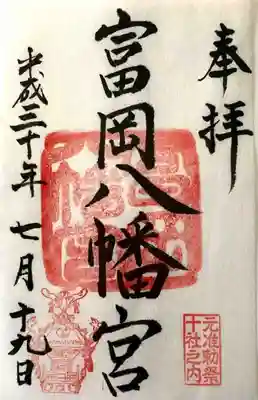 奉拝
富岡八幡宮
元准勅祭
十社之内
平成三十年七月十九日